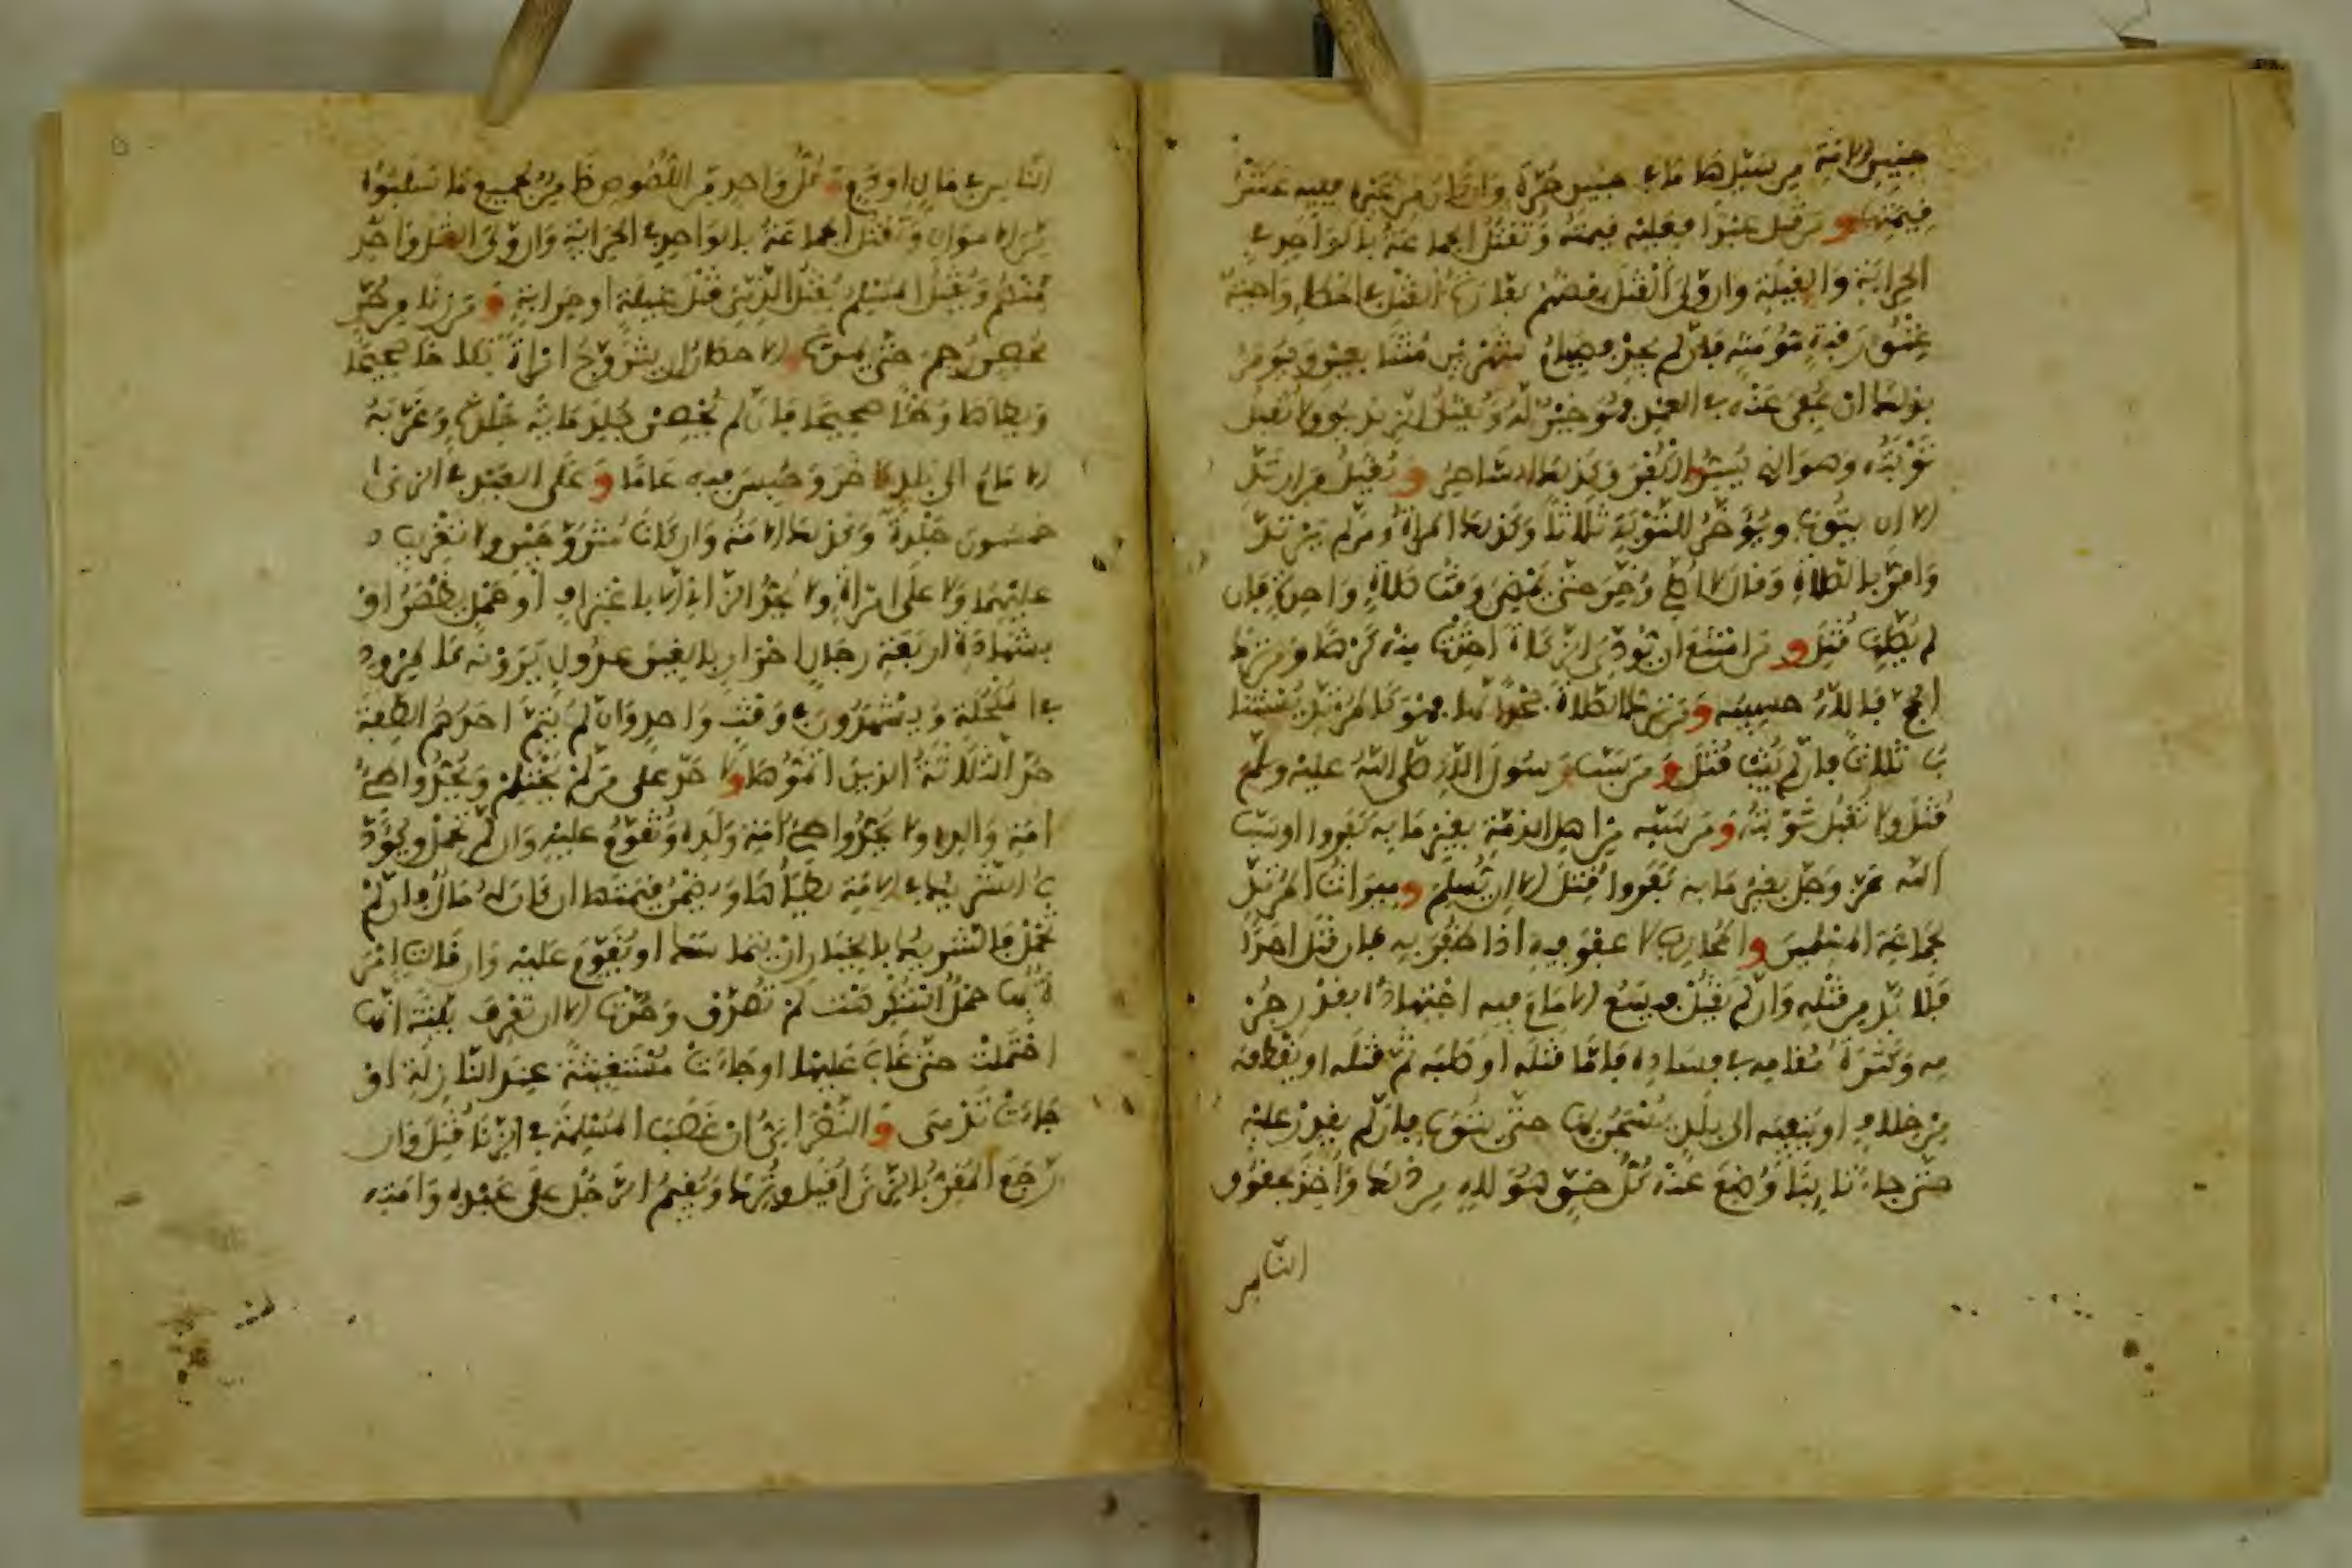 جنين الامة من سيدها ما في جنين الحرة وان كان من غيره ففيه عشر
قيمتها ومن قتل عبدا فعليه قيمته وتقتل الجماعة بالواحد في
الحرابة والغيلة وان ولي القتل بعضهم كفارة القتل في الخطا واجبة
عتق رقبة مؤمنة فان لم يجد فصيام شهرين متتابعين ويومر
بذلك ان عفي عنه في العمد فهو خير له ويقتل الزنديق ولا تقبل
توبته وهو الذي يسر الكفر وكذلك الساحر ويقتل من ارتد
الا ان يتوب ويؤخر للتوبة ثلاثا وكذلك المراة ومن لم يرتد
واقر بالصلاة وقال لا اصلي اخر حتى يمضي وقت صلاة واحدة فان
لم يصلها قتل ومن امتنع ان يودي الزكاة اخذت منه كرها ومن ترك
الحج فالله حسيبه ومن ترك الصلاة جحدا لها فهو كالمرتد يستتا
ب ثلاثا فان لم يتب قتل ومن سب رسول الله صلى الله عليه وسلم
قتل ولا تقبل توبته ومن سبه من اهل الذمة بغير ما به كفروا او سب
الله عز وجل بغير ما به كفروا قتل الا ان يسلم وميراث المرتد
لجماعة المسلمين والمحارب لا عفو فيه اذا ظفر به فان قتل احدا
فلا بد من قتله وان لم يقتل فيسع الامام فيه اجتهاده بقدر جر
مه وكثرة مقامه في فساده فاما قتله او صلبه ثم قتله او يقطعه
من خلاف او ينفيه الى بلد يسجن بها حتى يتوب فان لم يقدر عليه
حتى جاء تائبا وضع عنه كل حق هو لله من ذلك واخذ بحقوق
الناس
الناس في مال او دم وكل واحد من اللصوص ضامن لجميع ما سلبوا
من الاموال وتقتل الجماعة بالواحد في الحرابة وان ولي القتل واحد
منهم ويقتل المسلم بقتل الذمي قتل غيلة او حرابة ومن زنا من حر
محصن رجم حتى يموت والاحصان ان يتزوج امراة نكاحا صحيحا
ويطاها وطئا صحيحا فان لم يحصن جلد مائة جلدة وغربه
الامام الى بلد اخر وحبس فيه عاما وعلى العبد في الزنى
خمسون جلدة وكذلك الامة وان كانا متزوجين ولا تغريب
عليهما ولا على امراة ولا يحد الزاني الا باعتراف او حمل يظهر او
بشهادة اربعة رجال احرار بالغين عدول يرونه كالمرود
في المكحلة ويشهدون في وقت واحد وان لم يتم احدهم الصفة
حد الثلاثة الذين اتموها ولا حد على من لم يحتلم ويحد واطئ
امة والده ولا يحد واطئ امة ولده وتقوم عليه وان لم تحمل ويؤد
ب الشريك في الامة يطاها ويضمن قيمتها ان كان له مال فان لم
تحمل فالشريك بالخيار ان يتماسك او تقوم عليه وان قالت امر
اة بها حمل استكرهت لم تصدق وحدت الا ان تعرف بينة انها
احتملت حتى غاب عليها او جاءت مستغيثة عند النازلة او
جاءت تدمى والنصراني ان غصب المسلمة في الزنا قتل وان
رجع المقر بالزنى اقيل وترك ويقيم الرجل على عبده وامته